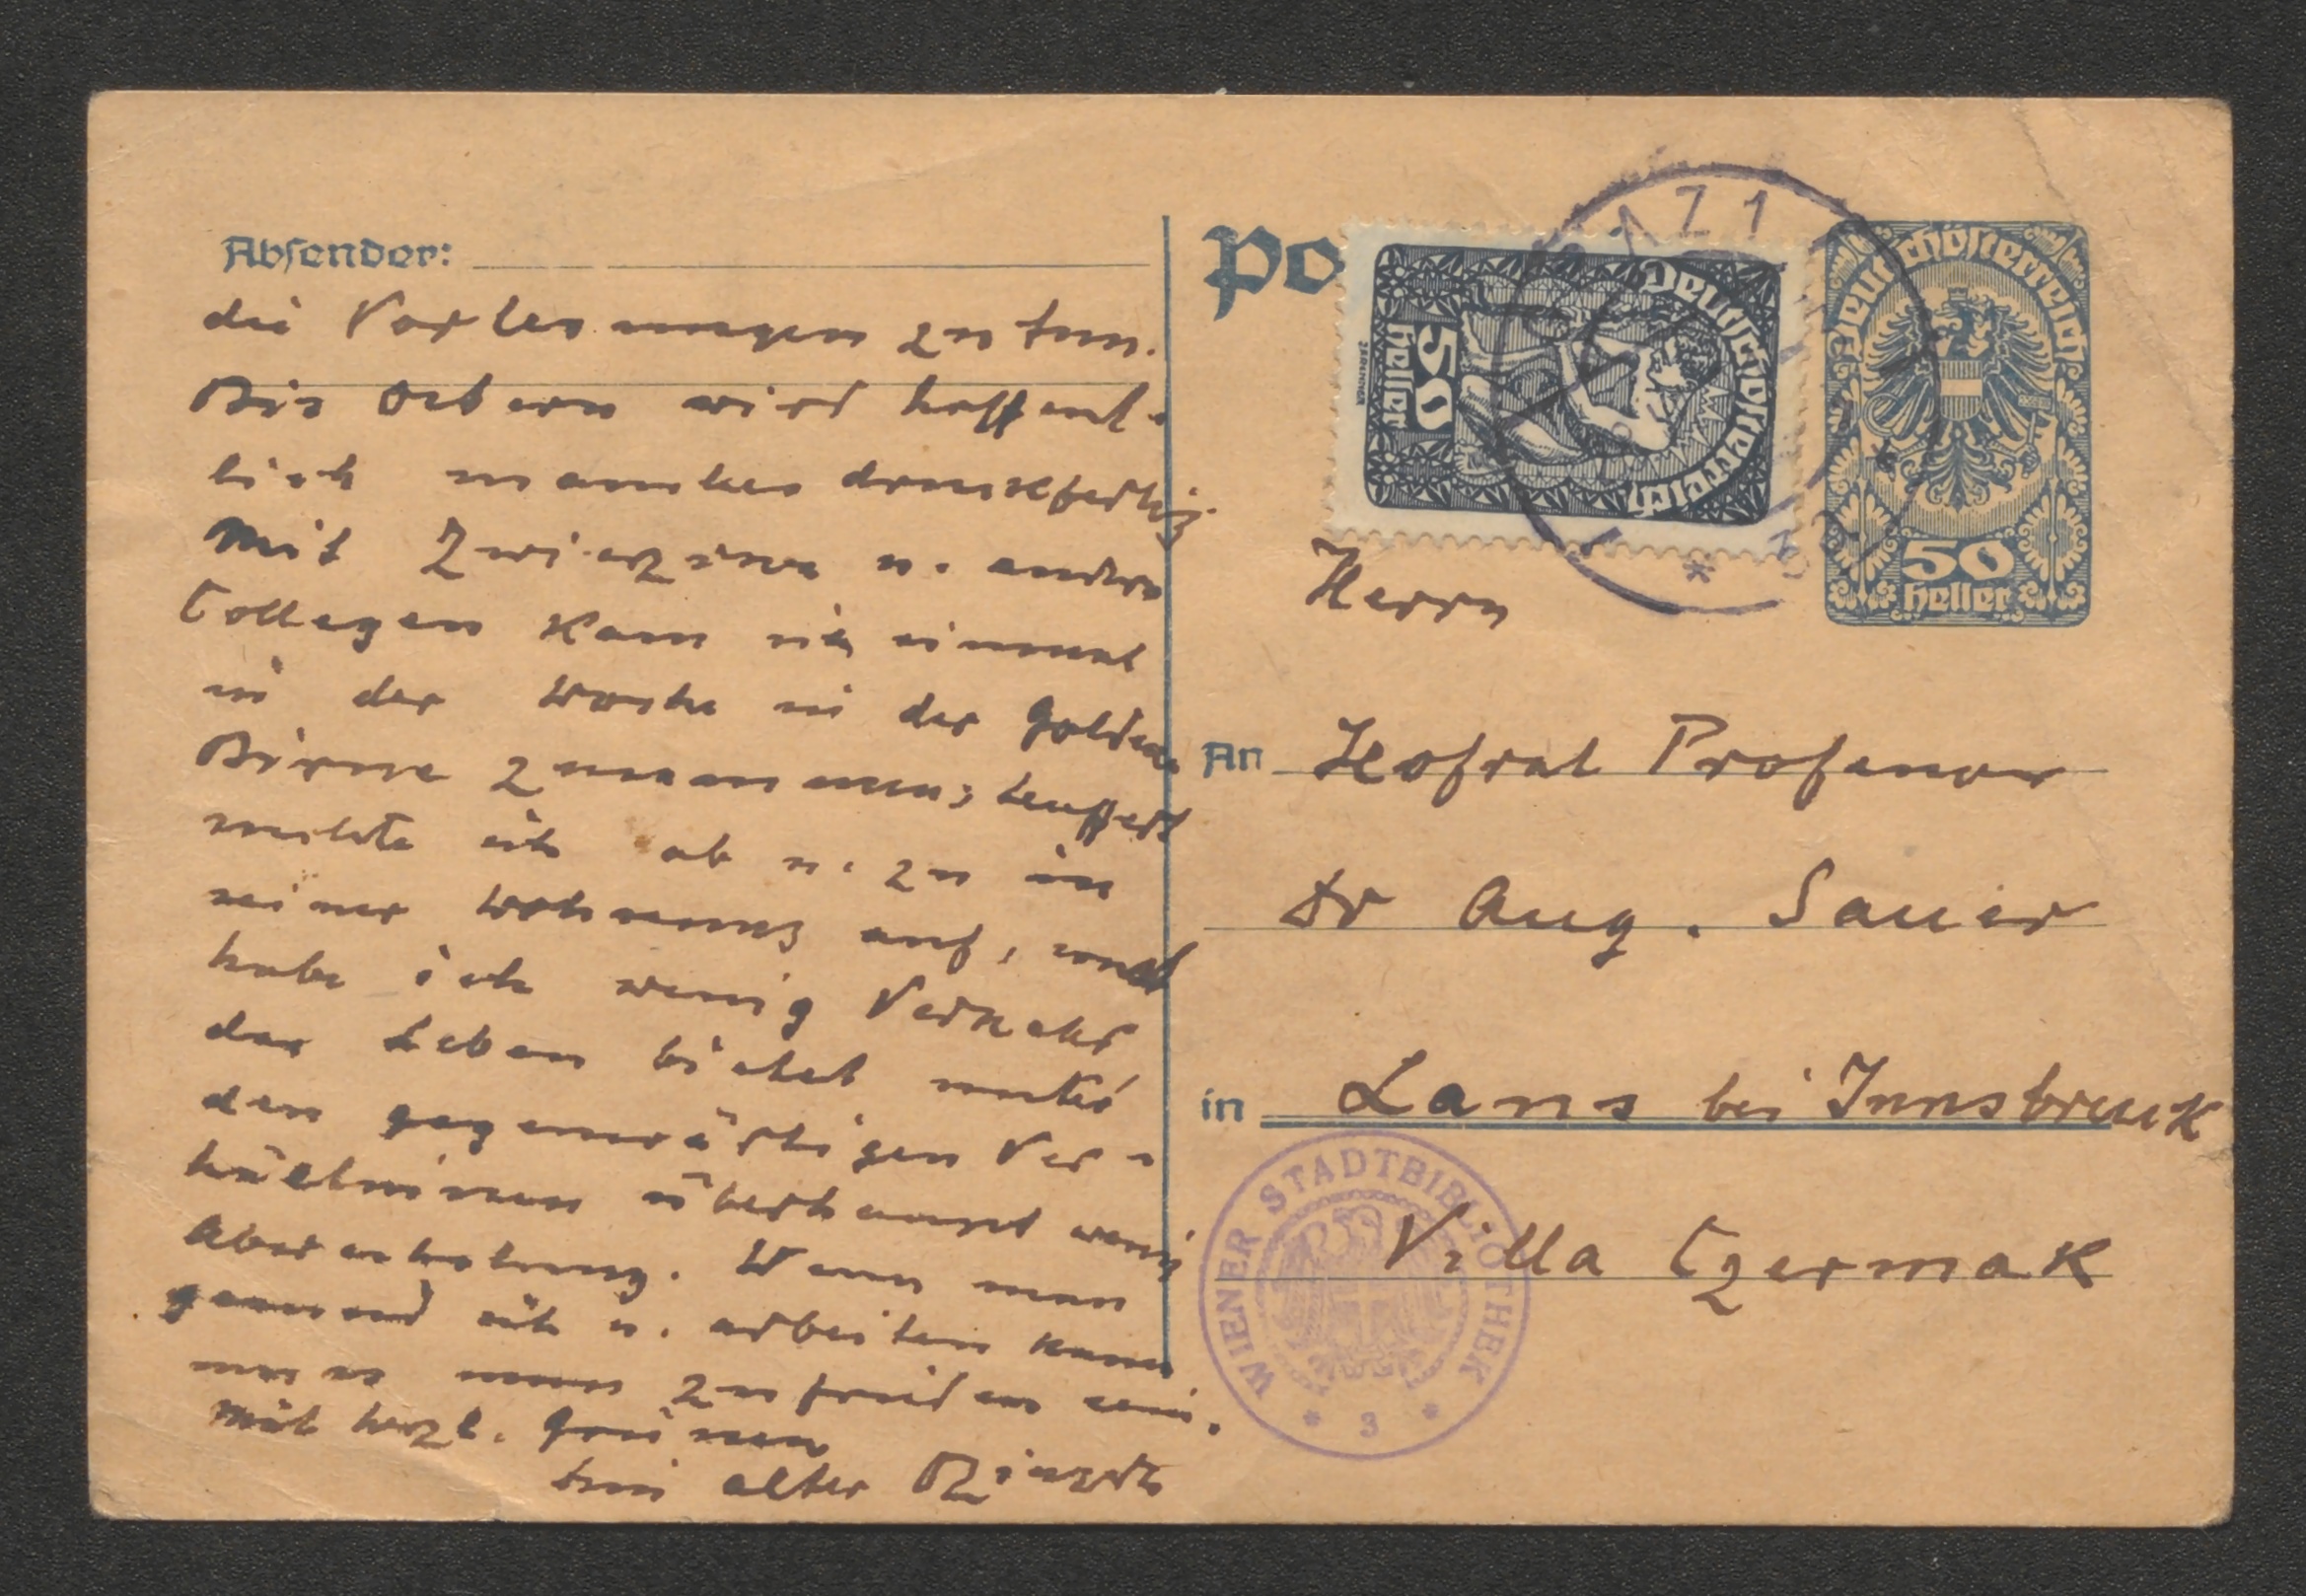 Absender:
die Vorlesungen zu tun.
Bis Ostern wird hoffent-
lich manches druckfertig.
Mit Zwierzina u. andern
Collegen kam ich einmal
in der Woche in der Golden
Birne zusammen; Seuffert
suchte ich ab u. zu in
seiner Wohnung auf, sonst
habe ich wenig Verkehr
das Leben bietet unter
den gegenwärtigen Ver-
hältnissen überhaupt wenig
Abwechslung. Wenn man
gesund ist u. arbeiten kann
muss man zufrieden sein.
Mit herzl. Grüssen
Dein alter
Po
Deutschösterreich
50
Heller
Deutschösterreich
50
Heller
AZ 1
Herrn
An Hofrat Professor
Dr Aug. Sauer
in Lans bei Innsbruck
Villa Czermak
WIENER STADTBIBLIOTHEK
* 3 *